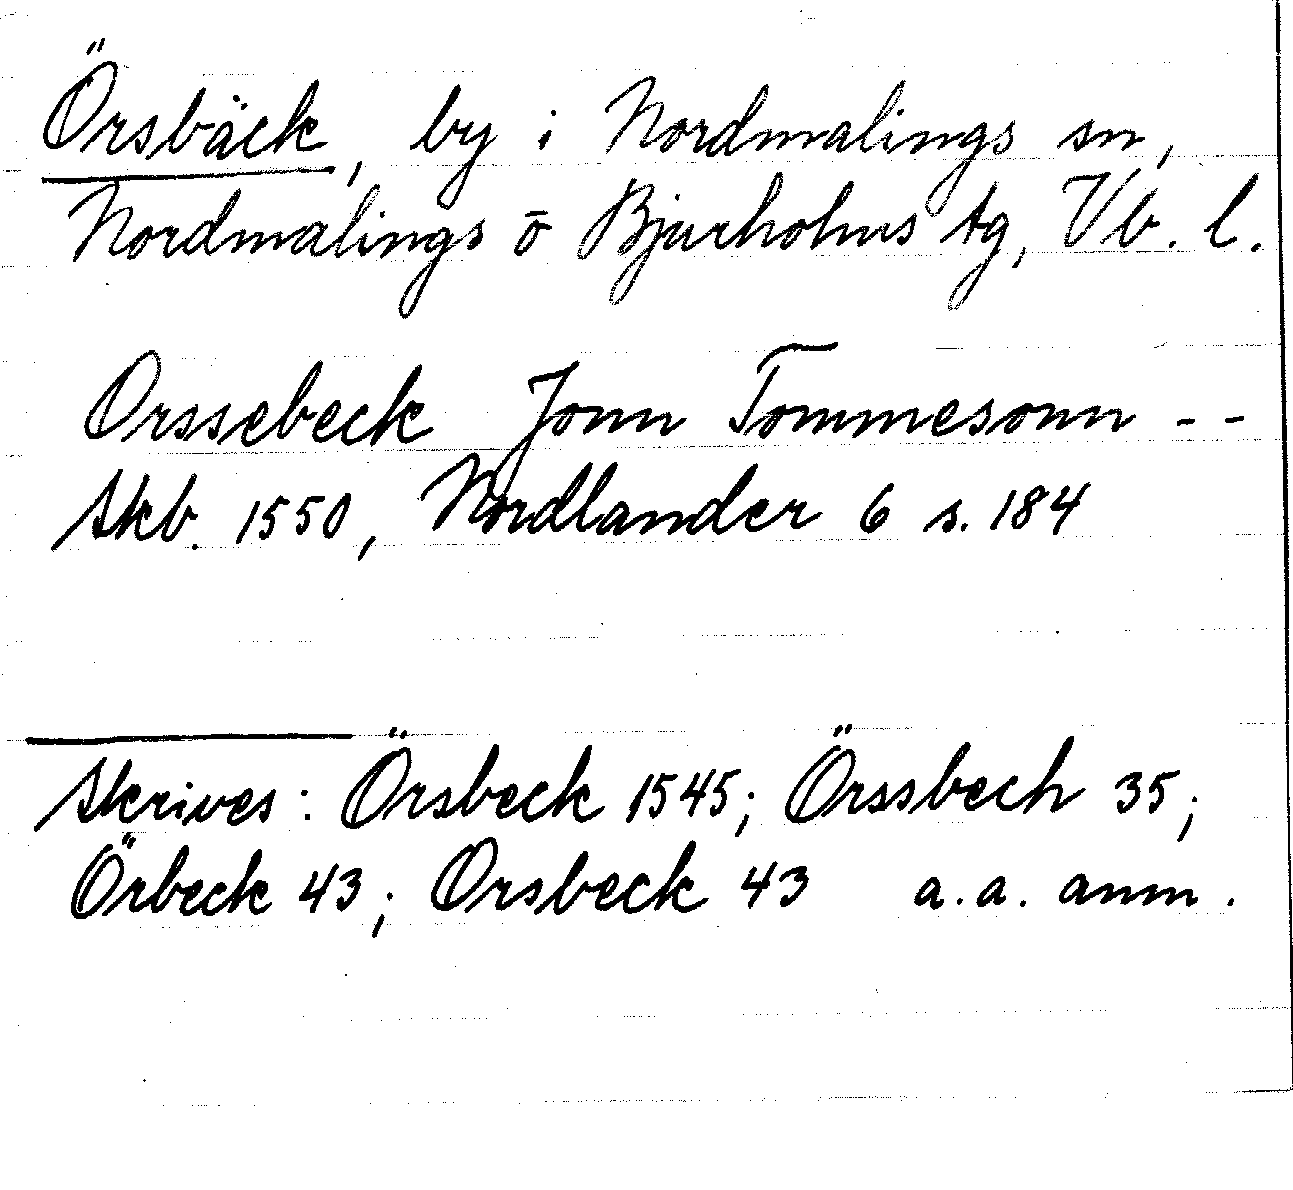 Örsbäck, by i Nordmalings sn,
Nordmalings o Bjurholms tg, Vb. l.
Orssebeck Jonn Tommesonn - -
Skb. 1550, Nordlander 6 s. 184
Skrives: Örsbeck 1545; Örssbech 35;
Örbeck 43; Orsbeck 43 a.a. anm.